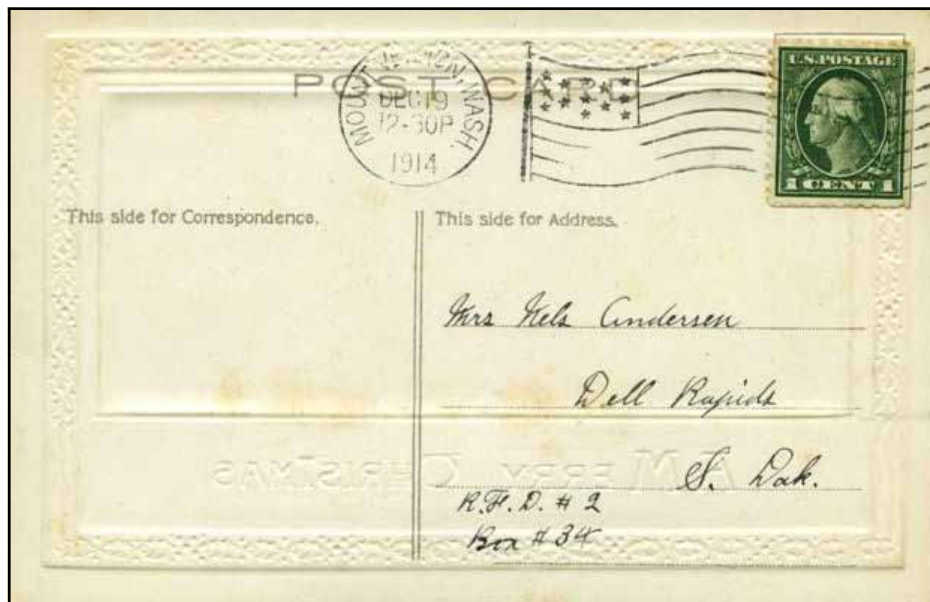 POST CARD
MOUNT VERNON, WASH.
DEC 19
12-30P
1914
U.S. POSTAGE
1 CENT 1
This side for Correspondence.
This side for Address.
Mrs Nels Andersen
Dell Rapids
S. Dak.
R.F.D. # 2
Box # 34
A MERRY CHRISTMAS